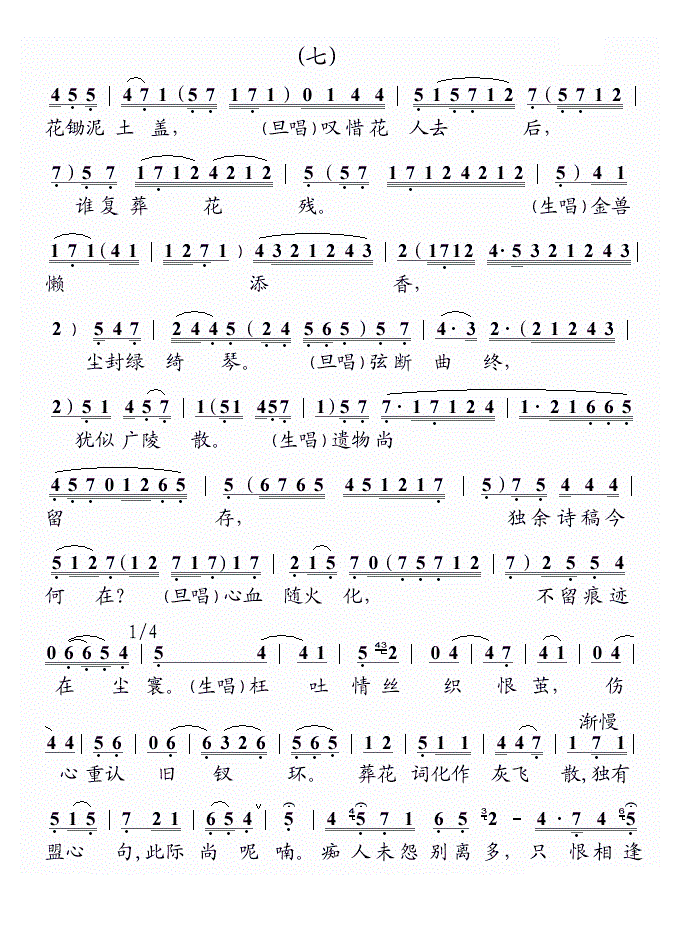 (七)
4 5 5 | 4 7 1 (5 7 1 7 1) 0 1 4 4 | 5 1 5 7 1 2 7 (5 7 1 2
花锄泥 土 盖, (旦唱)叹 惜 花 人去 后,
7) 5 7 1 7 1 2 4 2 1 2 | 5 (5 7 1 7 1 2 4 2 1 2 | 5) 4 1
谁 复 葬 花 残。 (生唱)金兽
1 7 1 (4 1 | 1 2 7 1 ) 4 3 2 1 2 4 3 | 2 (1 7 1 2 4· 5 3 2 1 2 4 3
懒 添 香,
2 ) 5 4 7 | 2 4 4 5 (2 4 5 6 5) 5 7 | 4· 3 2· (2 1 2 4 3 |
尘封绿 绮 琴。 (旦唱)弦断 曲 终,
2) 5 1 4 5 7 | 1 (5 1 4 5 7 | 1) 5 7 7· 1 7 1 2 4 | 1· 2 1 6 6 5
犹似 广陵 散。 (生唱)遗物 尚
4 5 7 0 1 2 6 5 | 5 (6 7 6 5 4 5 1 2 1 7 | 5) 7 5 4 4 4 |
留 存, 独余诗稿今
5 1 2 7 (1 2 7 1 7) 1 7 | 2 1 5 7 0 (7 5 7 1 2 | 7) 2 5 5 4
何 在? (旦唱)心血 随火 化, 不留痕迹
1/4
0 6 6 5 4 | 5 4 | 4 1 | 5 43 2 | 0 4 | 4 7 | 4 1 | 0 4 |
在 尘 寰。(生唱)枉 吐 情 丝 织 恨 茧, 伤
渐慢
4 4 | 5 6 | 0 6 | 6 3 2 6 | 5 6 5 | 1 2 | 5 1 1 | 4 4 7 | 1 7 1
心 重认 旧 钗 环。 葬花 词化作 灰飞 散,独有
5 1 5 | 7 2 1 | 6 5 4 v | 5 | 4 4 5 7 1 6 5 3 2 – 4· 7 4 6 5
盟心 句,此际 尚 呢 喃。痴 人 未 怨 别 离 多, 只 恨 相 逢